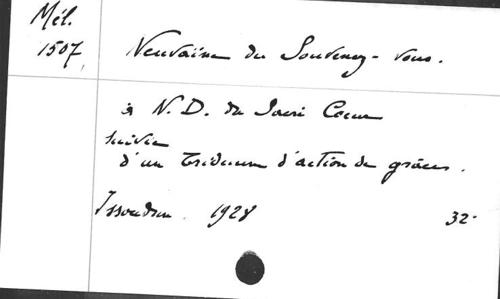 Mél.
1507
Neuvaine du Souvenez-vous.
à N. D. du Sacré Coeur
suivie
d'un triduum d'action de grâces.
Issoudun 1928 32